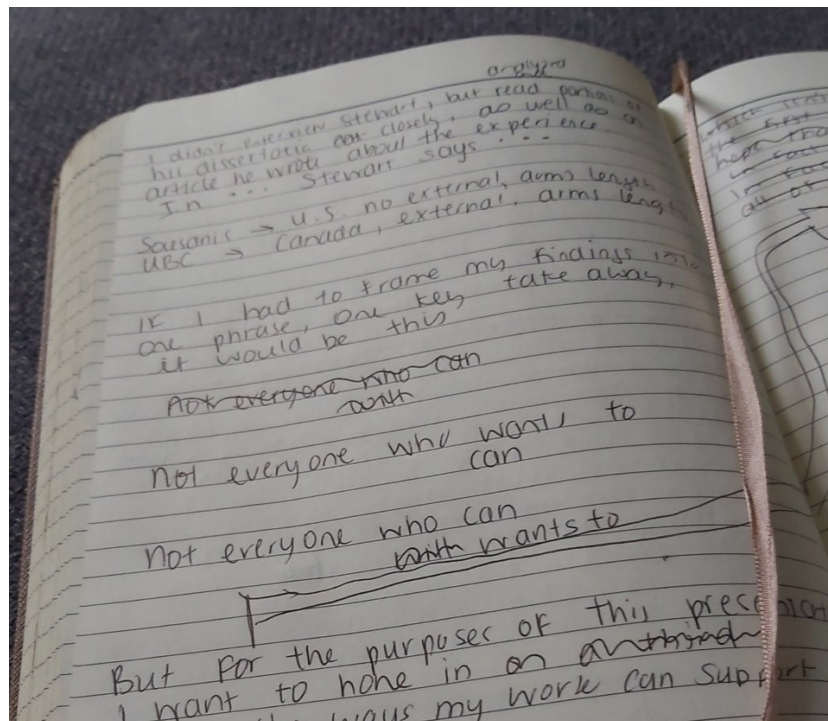 analyzed
I didn't interview Stewart, but read portions of
his dissertation closely, as well as an
article he wrote about the experience.
In ... Stewart says ...
Sousanis → U.S. no external, arms length
UBC → Canada, external, arms length
If I had to frame my findings into
one phrase, one key take away,
it would be this
Not everyone who can
not everyone who wants to
can
not everyone who can
wants to
But for the purposes of this
I want to hone in on
ways my work can support
which
the first
hope that
in fact
in
all of